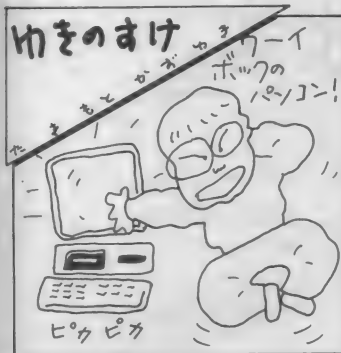 ゆきのすけ
たきもとかずゆき
ワーイ
ボックの
パソコン!
ピカ ピカ